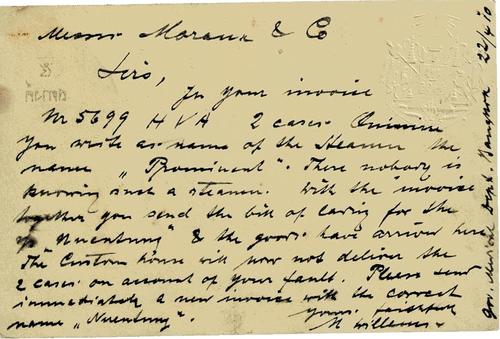 Messrs Moraux & Co
Sirs,
In your invoice
Nr 5699 HVH 2 cases Quinine
you write as name of the Steamer the
name „Prominent". There nobody is
knowing such a steamer. With the invoice
together you send the bill of lading for the
„Nuentung" & the goods have arrived here.
The Custom house will now not deliver the
2 cases on account of your fault. Please send
immediately a new invoice with the correct
name „Nuentung".
Yours faithfully
Willems
Gov. Medical Dept. Bangkok 22/4 10